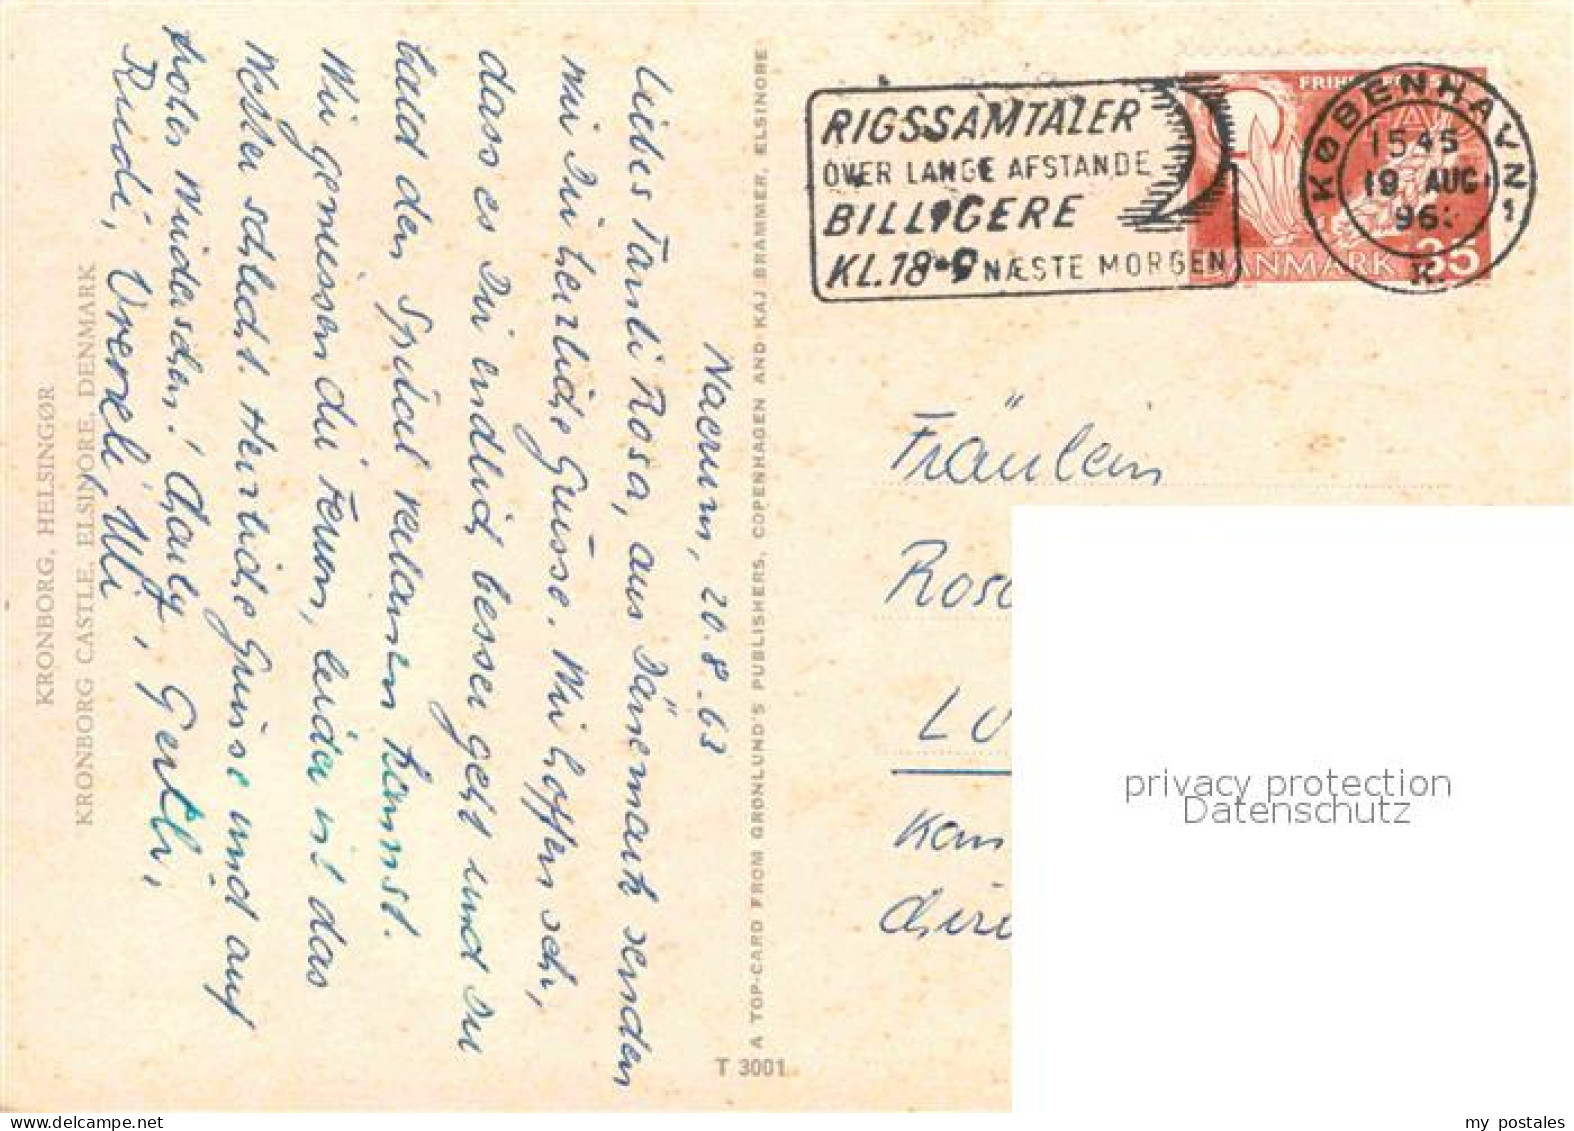 Naerum, 20.8.63
Liebes Tanti Rosa, aus Dänemark senden
wir Dir herzliche Grüsse. Wir hoffen sehr,
dass es Dir endlich besser geht und Du
bald den Spital verlassen kannst.
Wir geniessen die Ferien, leider ist das
Wetter schlecht. Herzliche Grüsse und auf
frohes Wiedersehen!
Ruedi, Vreneli, Ulli
KRONBORG, HELSINGØR
KRONBORG CASTLE, ELSINORE, DENMARK
A TOP-CARD FROM GRØNLUND'S PUBLISHERS, COPENHAGEN AND KAJ BRAMMER, ELSINORE
T 3001
RIGSSAMTALER
OVER LANGE AFSTANDE
BILLIGERE
KL.18-9 NÆSTE MORGEN
KØBENHAVN
1545
19 AUG
196
K.
DANMARK 35
Fräulein
Rosa
LU
privacy protection
Datenschutz
my postales